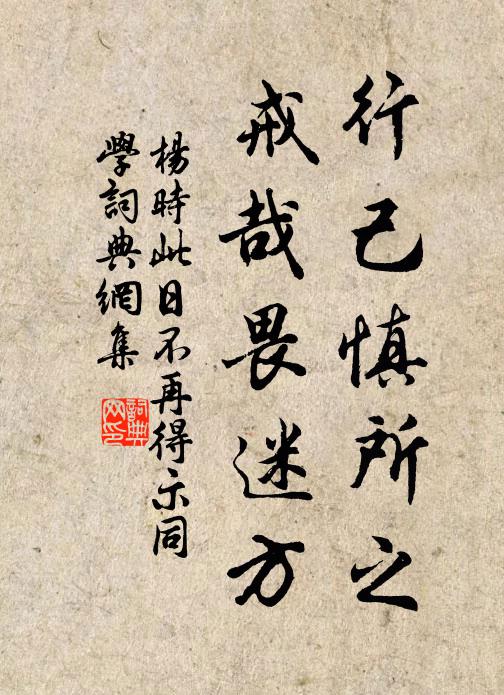 行己慎所之
戒哉畏迷方
楊時此日不再得示同
學詞典網集
詞典
网印